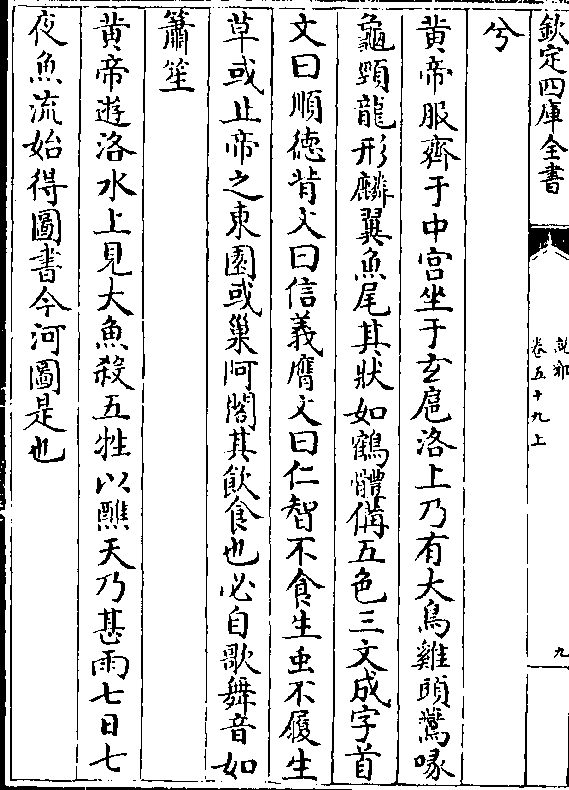 欽定四庫全書
說郛
卷五十九上
九
兮
黄帝服齊于中宫坐于玄扈洛上乃有大鳥雞頭鷰喙
龜頸龍形麟翼魚尾其狀如鶴體備五色三文成字首
文曰順徳背文曰信義膺文曰仁智不食生虫不履生
草或止帝之東園或巢阿閣其飲食也必自歌舞音如
簫笙
黄帝遊洛水上見大魚殺五牲以醮天乃甚雨七日七
夜魚流始得圖書今河圖是也